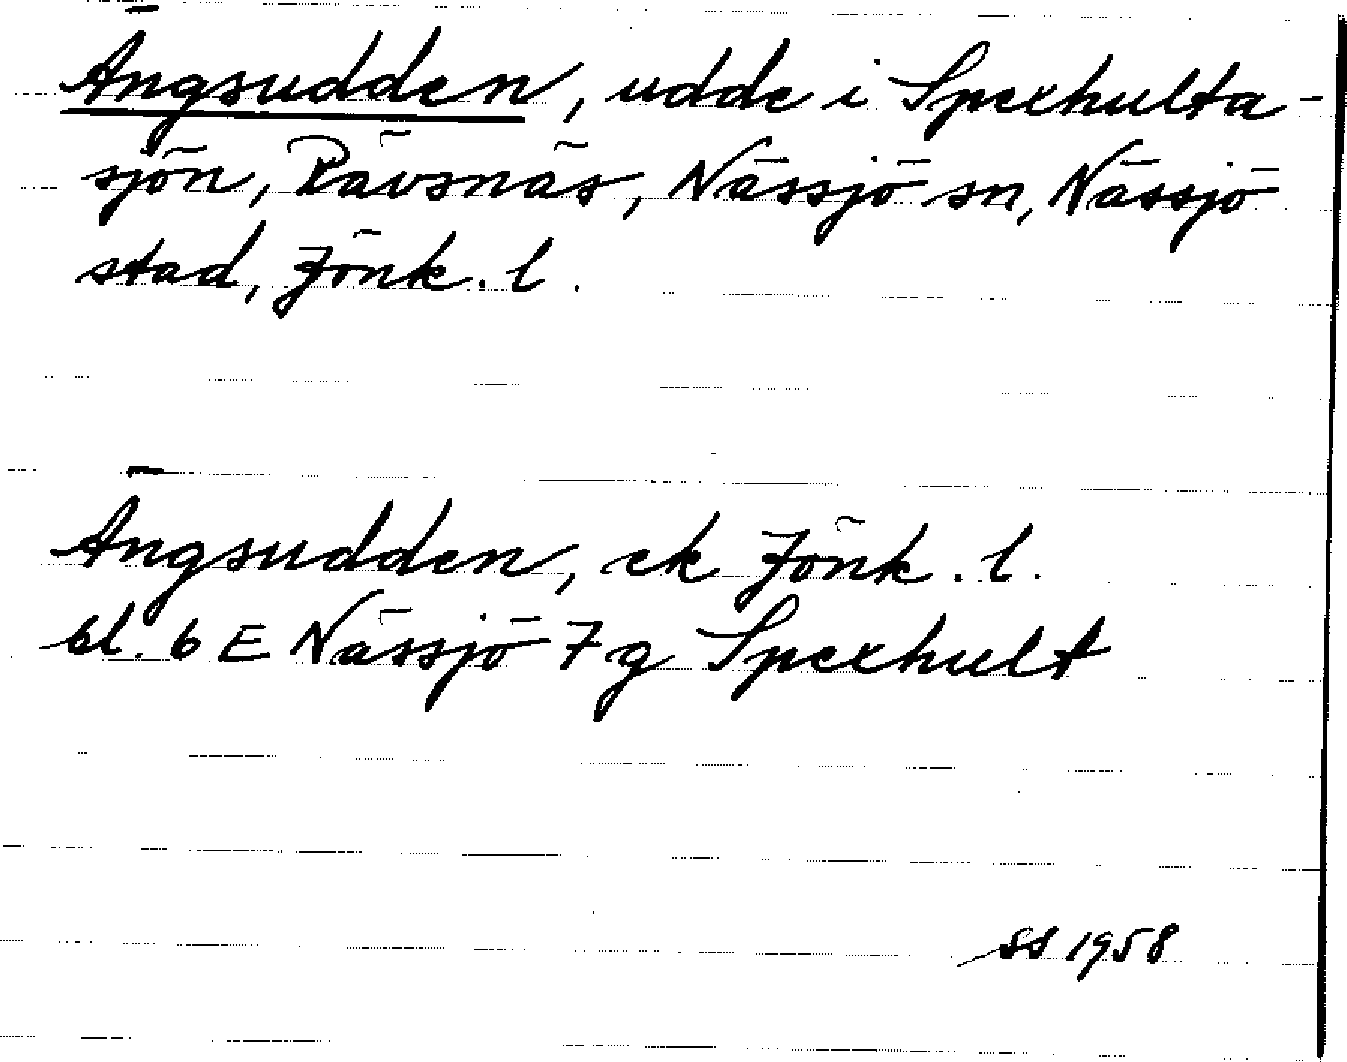 Ängsudden, udde i Spexhulta-
sjön, Rävsnäs, Nässjö sn, Nässjö
stad, Jönk. l.
Ängsudden, ek Jönk. l.
bl. 6 E Nässjö 7 g Spexhult
SS 1958